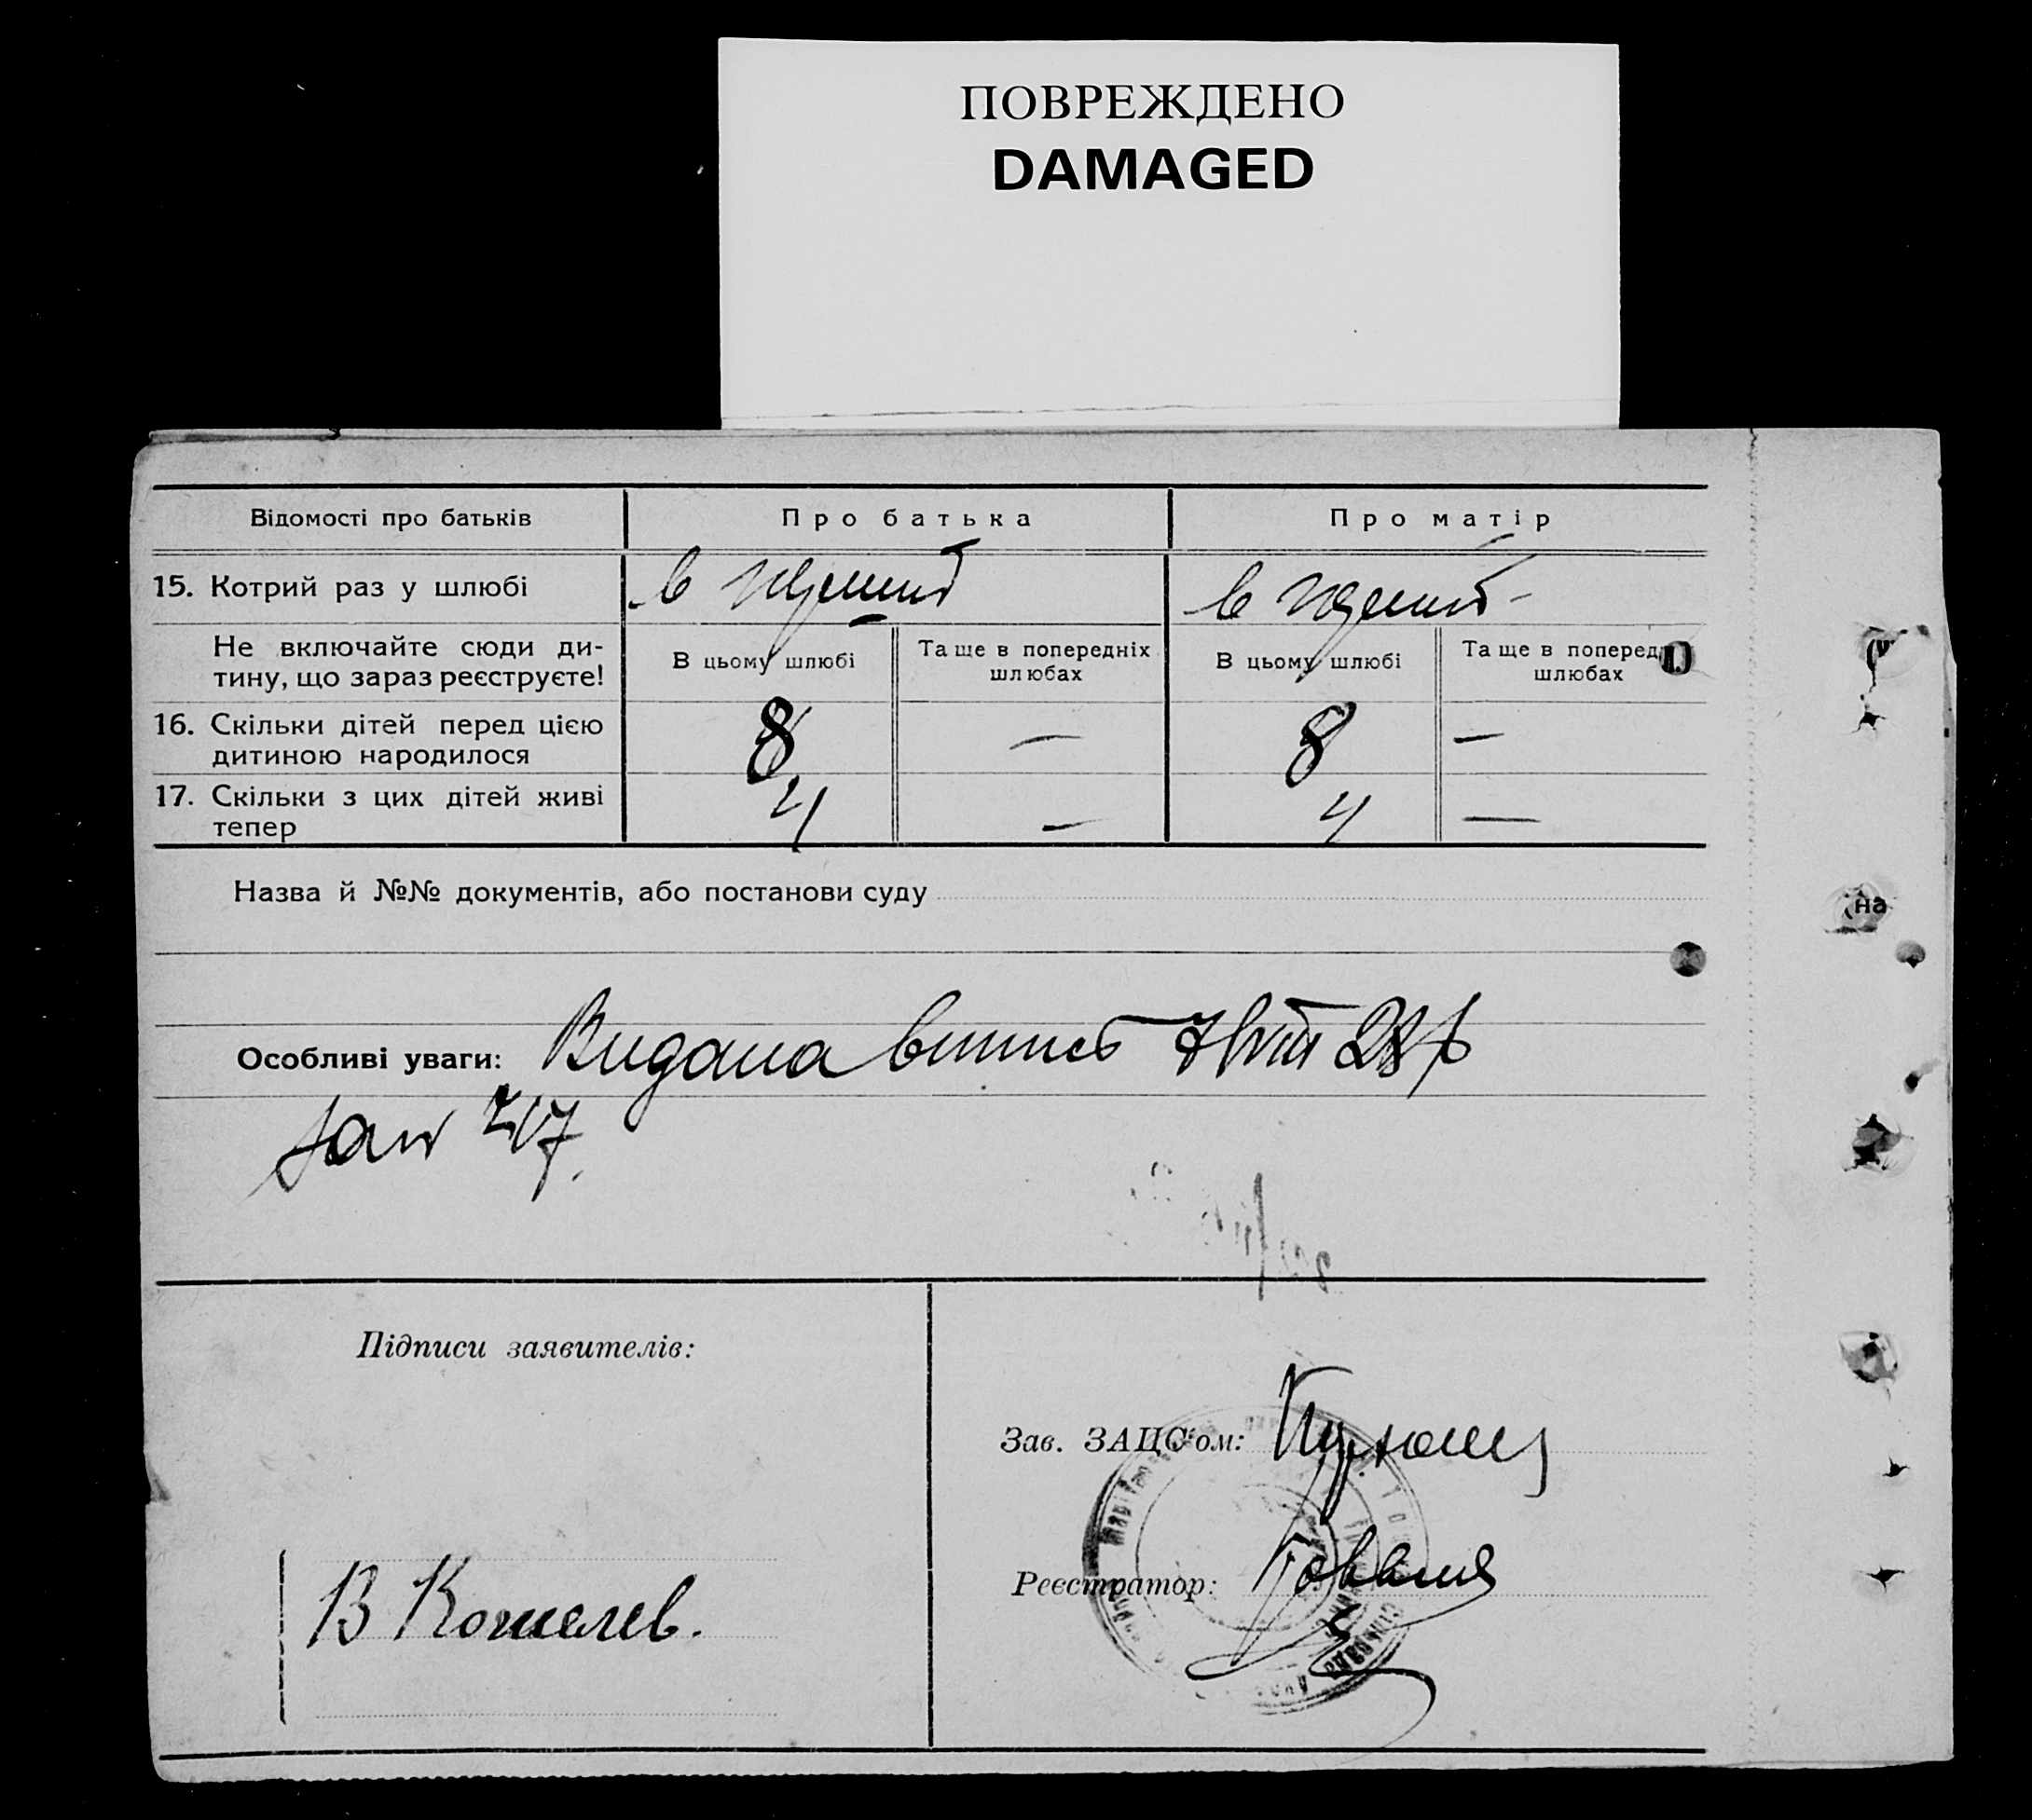 ПОВРЕЖДЕНО
DAMAGED
Відомості про батьків
Про батька
Про матір
15. Котрий раз у шлюбі
в перший
в перший
Не включайте сюди ди-
тину, що зараз реєструєте!
В цьому шлюбі
Та ще в попередніх
шлюбах
В цьому шлюбі
Та ще в поперед
шлюбах
16. Скільки дітей перед цією
дитиною народилося
8
—
8
—
17. Скільки з цих дітей живі
тепер
4
—
4
—
Назва й №№ документів, або постанови суду
(на
Особливі уваги: Видана випись 28р
Підписи заявителів:
Зав. ЗАЦС'ом:
Реєстратор:
В Кошелев.